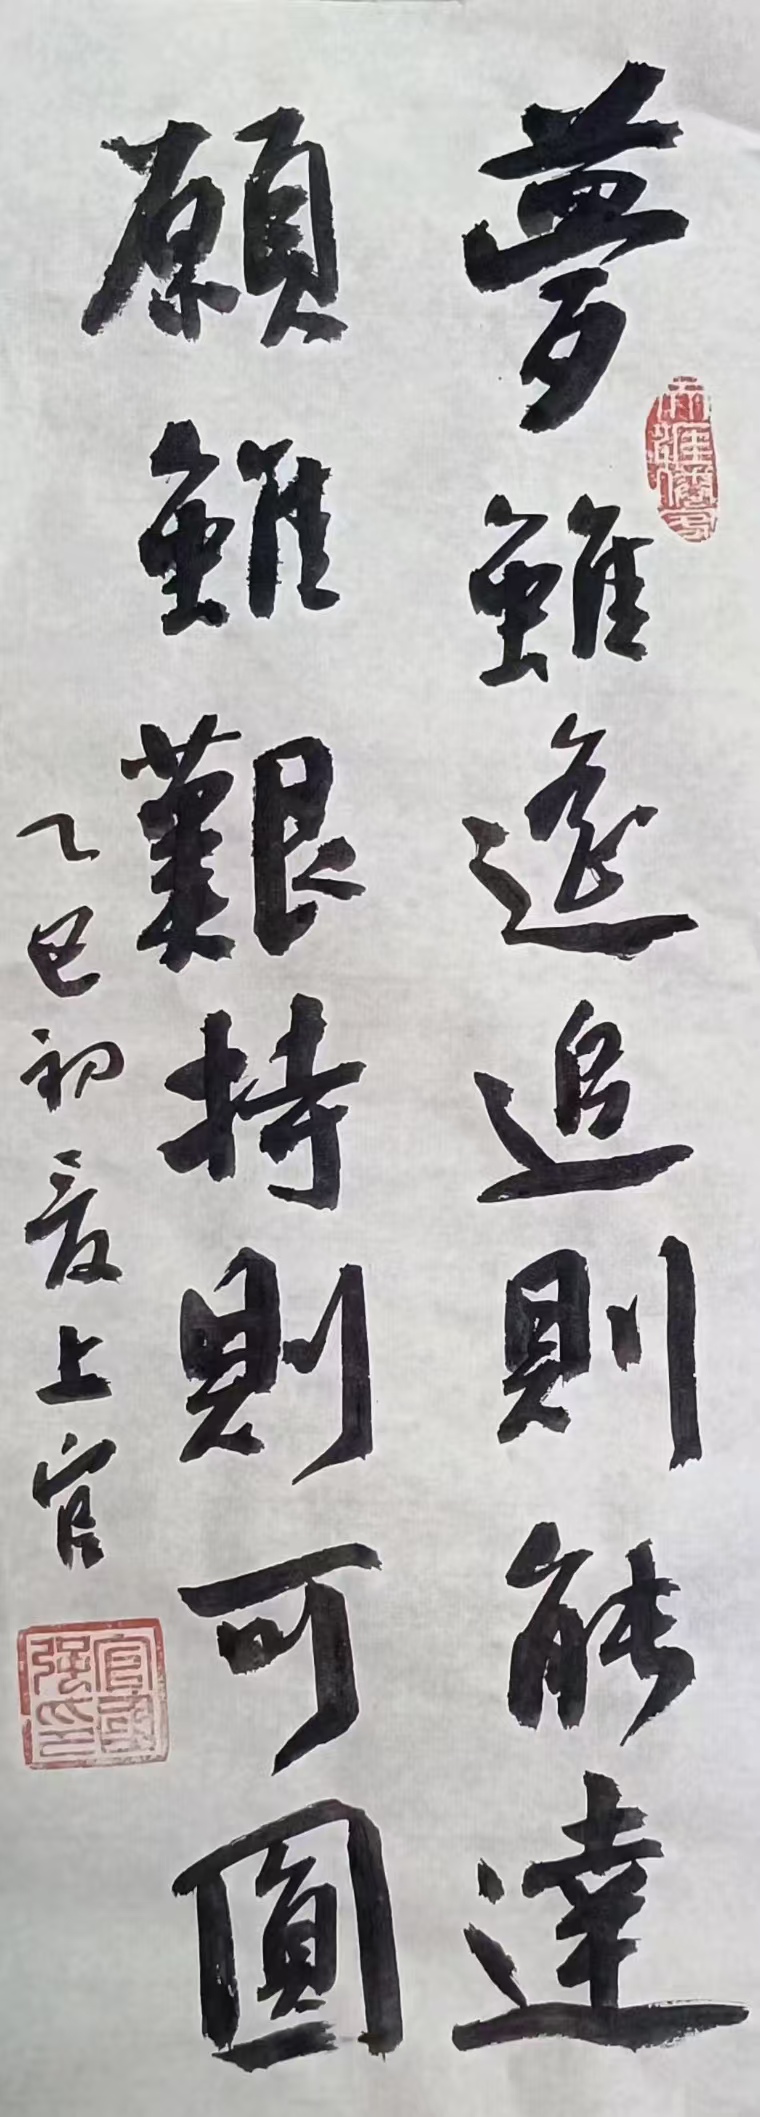 夢雖遙追則能達
願雖艱持則可圓
乙巳初夏上官
官國強印